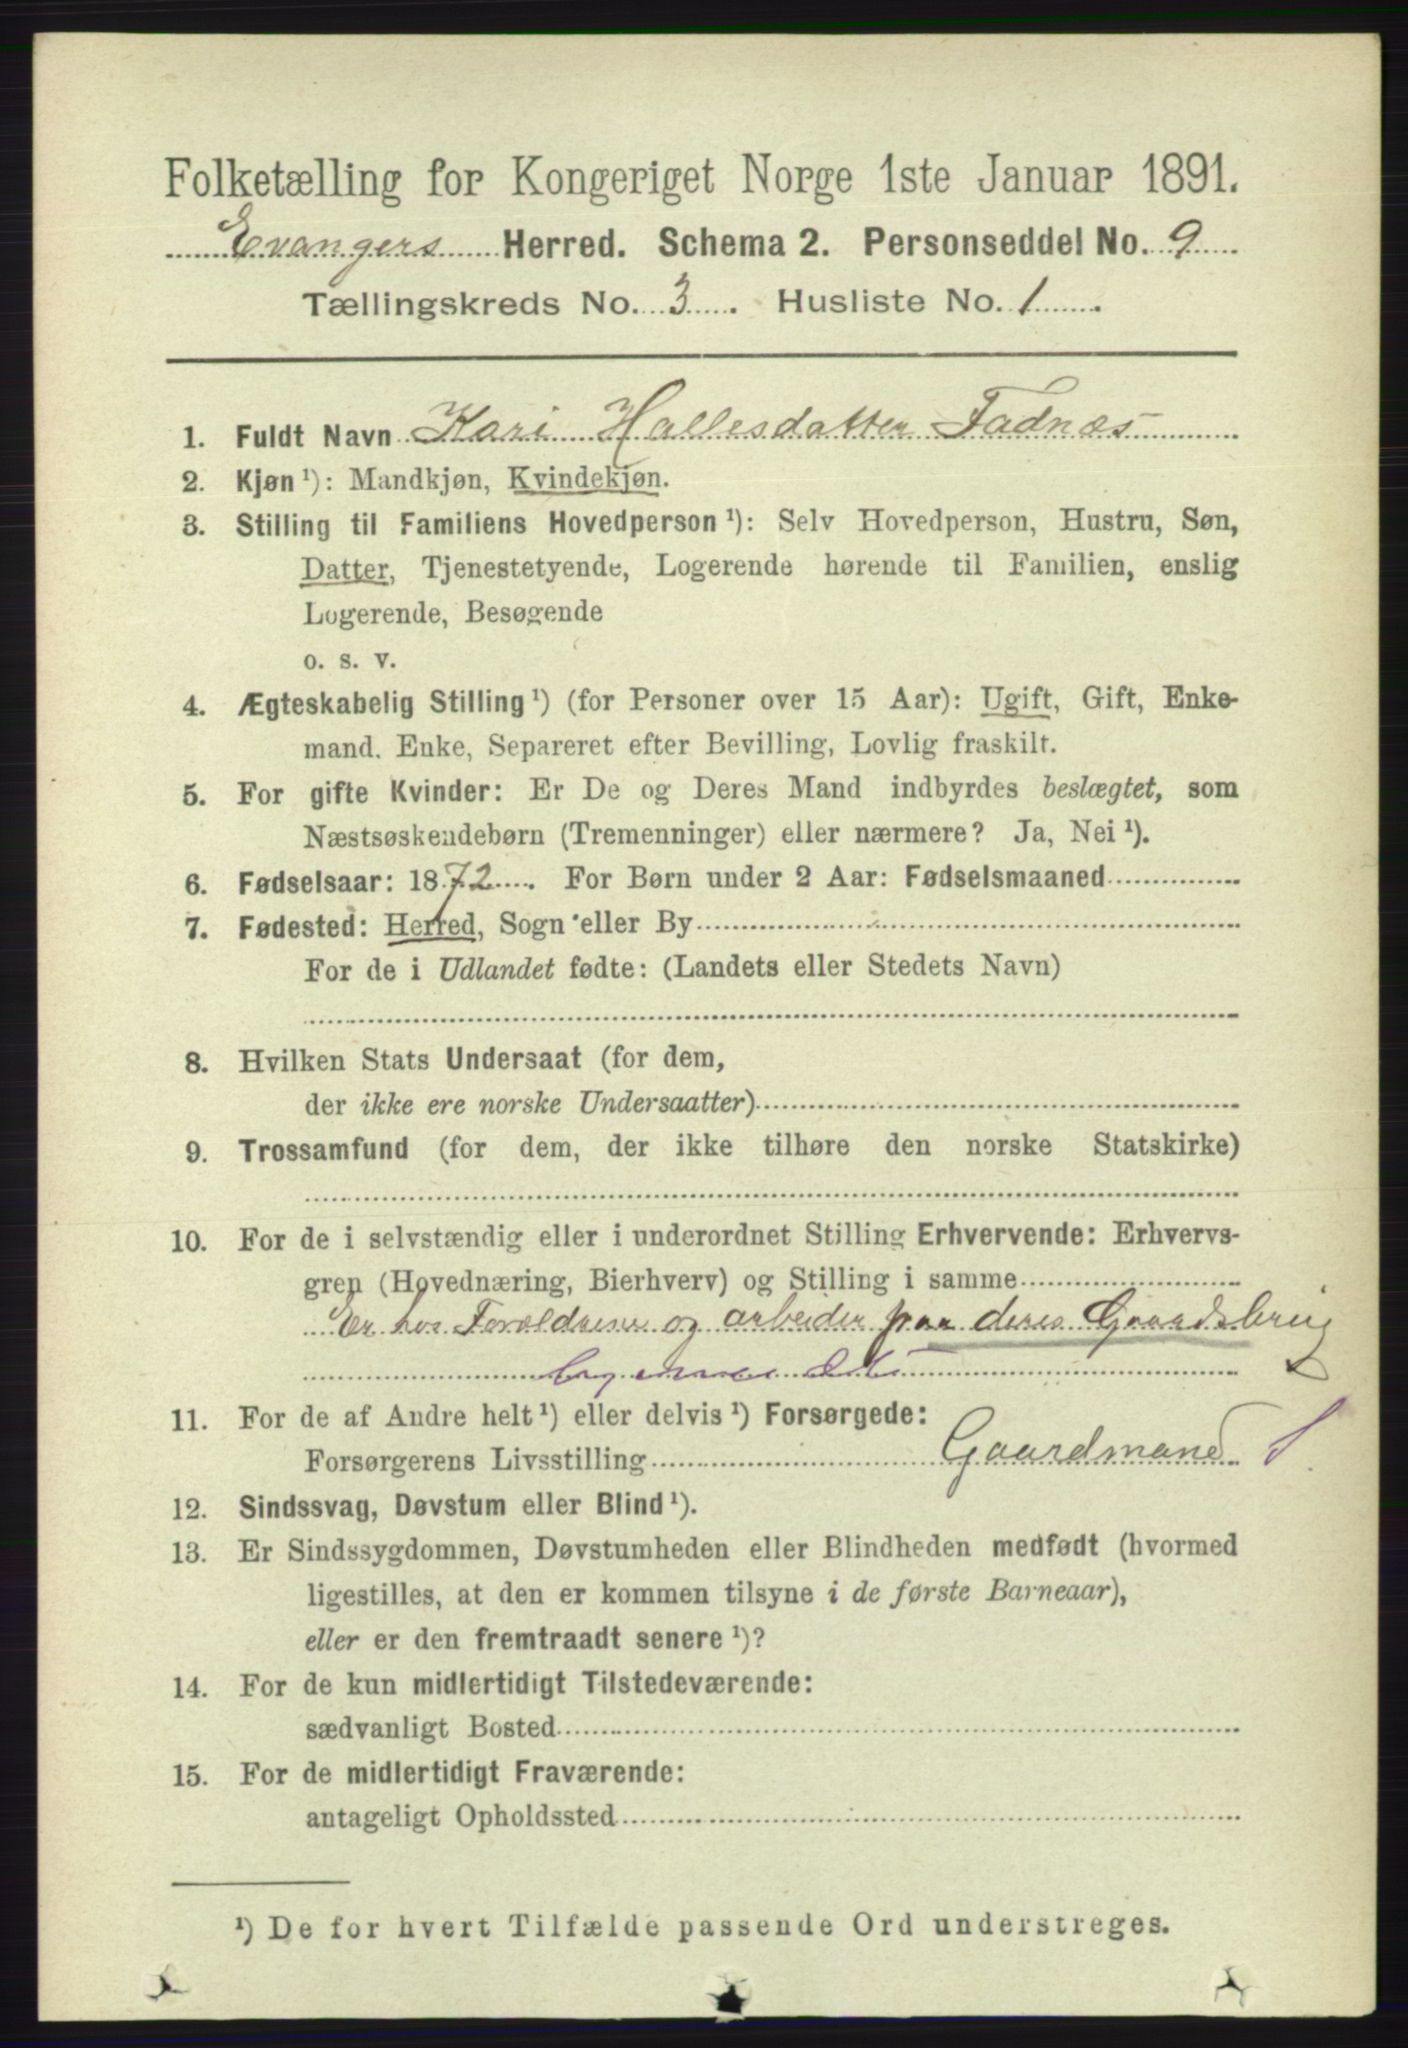 Folketælling for Kongeriget Norge 1ste Januar 1891.
Evangers Herred. Schema 2. Personseddel No. 9
Tællingskreds No. 3. Husliste No. 1.
1. Fuldt Navn Kari Hallesdatter Fadnæs
2. Kjøn ¹): Mandkjøn, Kvindekjøn.
3. Stilling til Familiens Hovedperson ¹): Selv Hovedperson, Hustru, Søn,
Datter, Tjenestetyende, Logerende hørende til Familien, enslig
Logerende, Besøgende
o. s. v.
4. Ægteskabelig Stilling ¹) (for Personer over 15 Aar): Ugift, Gift, Enke-
mand. Enke, Separeret efter Bevilling, Lovlig fraskilt.
5. For gifte Kvinder: Er De og Deres Mand indbyrdes beslægtet, som
Næstsøskendebørn (Tremenninger) eller nærmere? Ja, Nei ¹).
6. Fødselsaar: 1872. For Børn under 2 Aar: Fødselsmaaned
7. Fødested: Herred, Sogn eller By
For de i Udlandet fødte: (Landets eller Stedets Navn)
8. Hvilken Stats Undersaat (for dem,
der ikke ere norske Undersaatter)
9. Trossamfund (for dem, der ikke tilhøre den norske Statskirke)
10. For de i selvstændig eller i underordnet Stilling Erhvervende: Erhvervs-
gren (Hovednæring, Bierhverv) og Stilling i samme
Er hos Forældrene og arbeider paa deres Gaardsbrug
11. For de af Andre helt ¹) eller delvis ¹) Forsørgede:
Forsørgerens Livsstilling Gaardmand S
12. Sindssvag, Døvstum eller Blind ¹).
13. Er Sindssygdommen, Døvstumheden eller Blindheden medfødt (hvormed
ligestilles, at den er kommen tilsyne i de første Barneaar),
eller er den fremtraadt senere ¹)?
14. For de kun midlertidigt Tilstedeværende:
sædvanligt Bosted
15. For de midlertidigt Fraværende:
antageligt Opholdssted
¹) De for hvert Tilfælde passende Ord understreges.